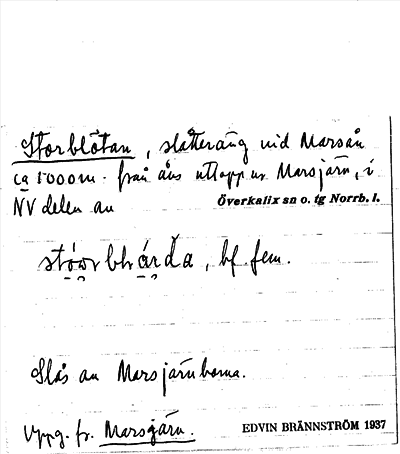 Storblötan, slåtteräng vid Marsån
ca 1000m. från åns utlopp ur Marsjärv, i
NV delen av
Överkalix sn o. tg Norrb. l.
bf fem.
Slås av Marsjärvborna.
Uppg. fr. Marsjärv.
EDVIN BRÄNNSTRÖM 1937